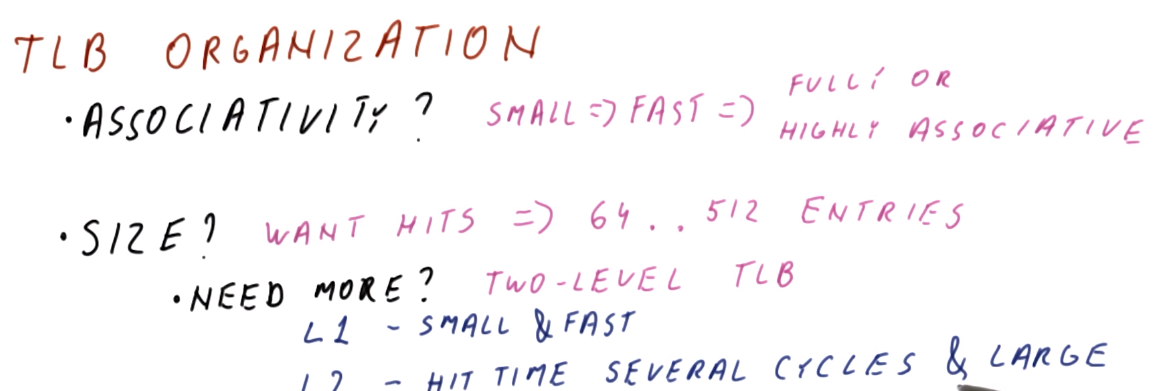 TLB ORGANIZATION
FULLY OR
• ASSOCIATIVITY? SMALL => FAST => HIGHLY ASSOCIATIVE
• SIZE? WANT HITS => 64 .. 512 ENTRIES
• NEED MORE? TWO-LEVEL TLB
L1 - SMALL & FAST
L2 - HIT TIME SEVERAL CYCLES & LARGE